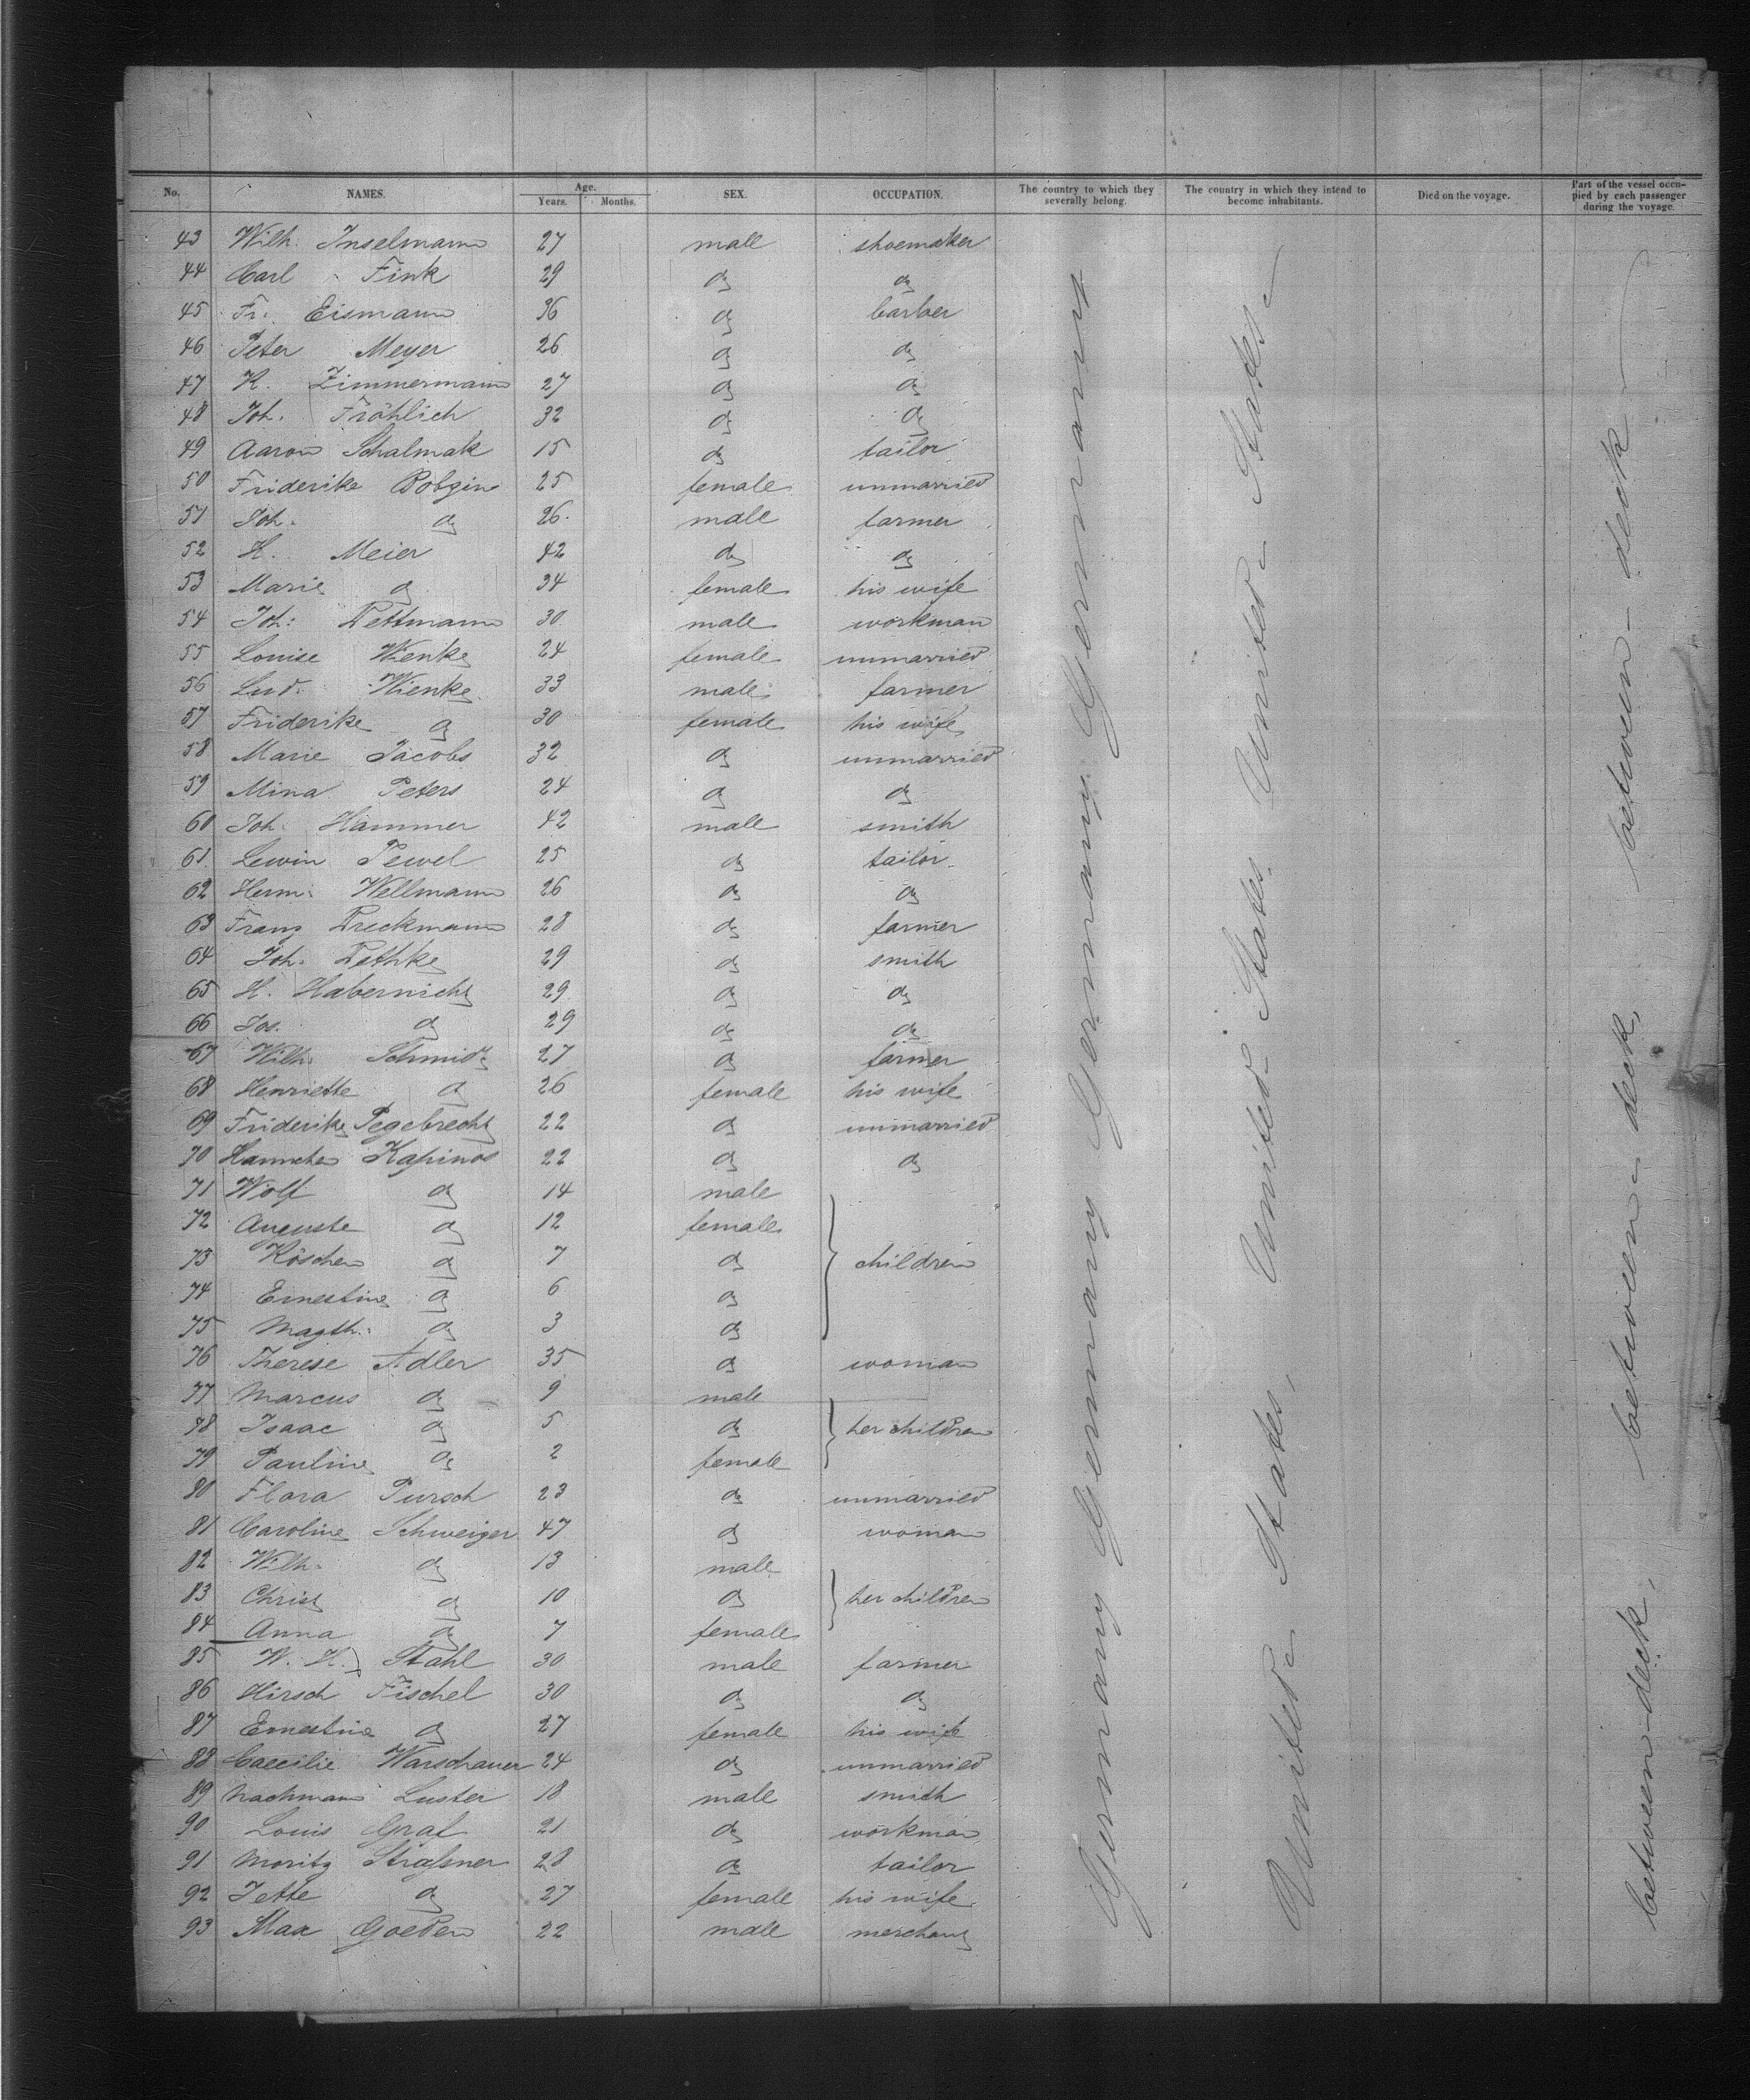 No. NAMES. Age. Years. Months. SEX. OCCUPATION. The country to which they severally belong. The country in which they intend to become inhabitants. Died on the voyage. Part of the vessel occupied by each passenger during the voyage.
43 Wilh. Inselmann 27 male shoemaker
44 Carl Fink 29 do do
45 Fr. Eismann 36 do barber
46 Peter Meyer 26 do do
47 H. Zimmermann 27 do do
48 Joh. Fröhlich 32 do do
49 Aaron Schalmak 15 do tailor
50 Friderike Bobzin 25 female unmarried
51 Joh. do 26 male farmer
52 H. Meier 42 do do
53 Marie do 34 female his wife
54 Joh: Dettmann 30 male workman
55 Louise Wienke 24 female unmarried
56 Lud. Wienke 33 male farmer
57 Friderike do 30 female his wife
58 Marie Jacobs 32 do unmarried
59 Mina Peters 24 do do
60 Joh. Hammer 42 male smith
61 Lewin Pewel 25 do tailor
62 Herm: Wellmann 26 do do
63 Franz Dreckmann 28 do farmer
64 Joh. Dethke 29 do smith
65 H. Habernicht 29 do do
66 Jos. do 29 do do
67 Wilh. Schmidt 27 do farmer
68 Henriette do 26 female his wife
69 Friderike Pegebrecht 22 do unmarried
70 Hannchen Kapinos 22 do do
71 Wolf do 14 male
72 Auguste do 12 female
73 Röschen do 7 do children
74 Ernestine do 6 do
75 Magth: do 3 do
76 Therese Adler 35 do woman
77 Marcus do 9 male
78 Isaac do 5 do her children
79 Pauline do 2 female
80 Flora Pursch 23 do unmarried
81 Caroline Schweiger 47 do woman
82 Wilh. do 13 male
83 Christ do 10 do her children
84 Anna do 7 female
85 W. H. Stahl 30 male farmer
86 Hirsch Fischel 30 do do
87 Ernestine do 27 female his wife
88 Caecilie Warschauer 24 do unmarried
89 Nachmann Luster 18 male smith
90 Louis Graf 21 do workman
91 Moritz Straßner 28 do tailor
92 Jette do 27 female his wife
93 Max Goeden 22 male merchant
Germany Germany Germany Germany
United States, United States United States
between-deck, between-deck, between-deck